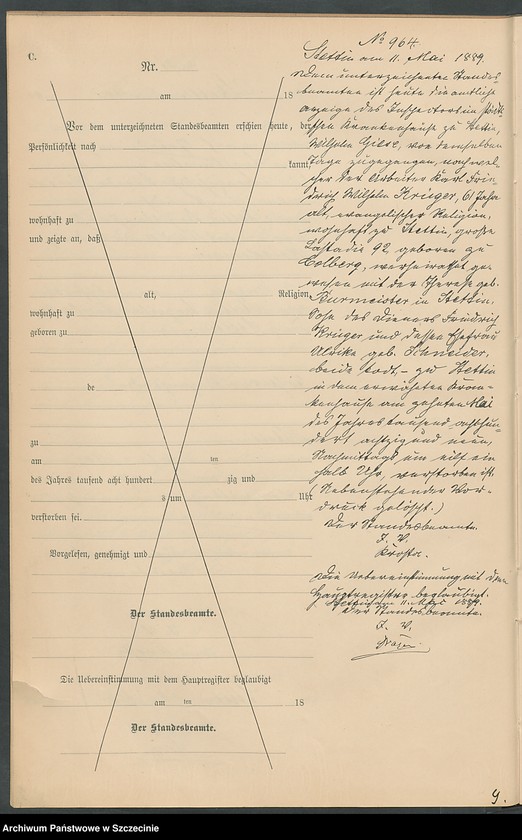 C.
Nr.
am 18
Vor dem unterzeichneten Standesbeamten erschien heute, der
Persönlichkeit nach
kannt
wohnhaft zu
und zeigte an, daß
alt, Religion
wohnhaft zu
geboren zu
de
zu
am ten
des Jahres tausend acht hundert zig und
s um Uhr
verstorben sei.
Vorgelesen, genehmigt und
Der Standesbeamte.
Die Uebereinstimmung mit dem Hauptregister beglaubigt
am ten 18
Der Standesbeamte.
No 964.
Stettin am 11. Mai 1889.
Dem unterzeichneten Standes-
beamten ist heute die amtliche
Anzeige des Inspectors im städti-
schen Krankenhause zu Stettin,
Wilhelm Giese, von demselben
Tage zugegangen, nach wel-
cher der Arbeiter Karl Frie-
drich Wilhelm Krüger, 61 Jahre
alt, evangelischer Religion,
wohnhaft zu Stettin, große
Lastadie 92, geboren zu
Colberg, verheirathet ge-
wesen mit der Therese geb.
Burmeister in Stettin,
Sohn des Dieners Friedrich
Krüger und dessen Ehefrau
Ulrike geb. Schneider,
beide todt – zu Stettin
in dem erwähnten Kran-
kenhause am zehnten Mai
des Jahres tausend achthun-
dert achtzig und neun,
Nachmittags um eilf ein
halb Uhr, verstorben ist.
Nebenstehender Vor-
druck gelöscht.)
Der Standesbeamte.
I. V.
Die Uebereinstimmung mit dem
Hauptregister beglaubigt.
Stettin am 11. Mai 1889.
Der Standesbeamte.
I. V.
9.
Archiwum Państwowe w Szczecinie